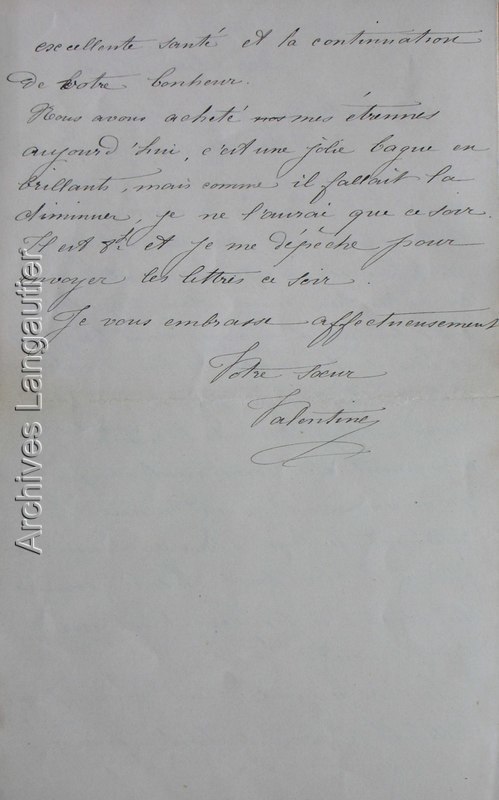 excellente santé et la continuation
de votre bonheur.
Nous avons acheté nos mes étrennes
aujourd'hui, c'est une jolie bague en
brillants, mais comme il fallait la
diminuer, je ne l'aurai que ce soir.
Il est 8h et je me dépêche pour
envoyer les lettres ce soir.
Je vous embrasse affectueusement
Votre sœur
Valentine
Archives Langautier